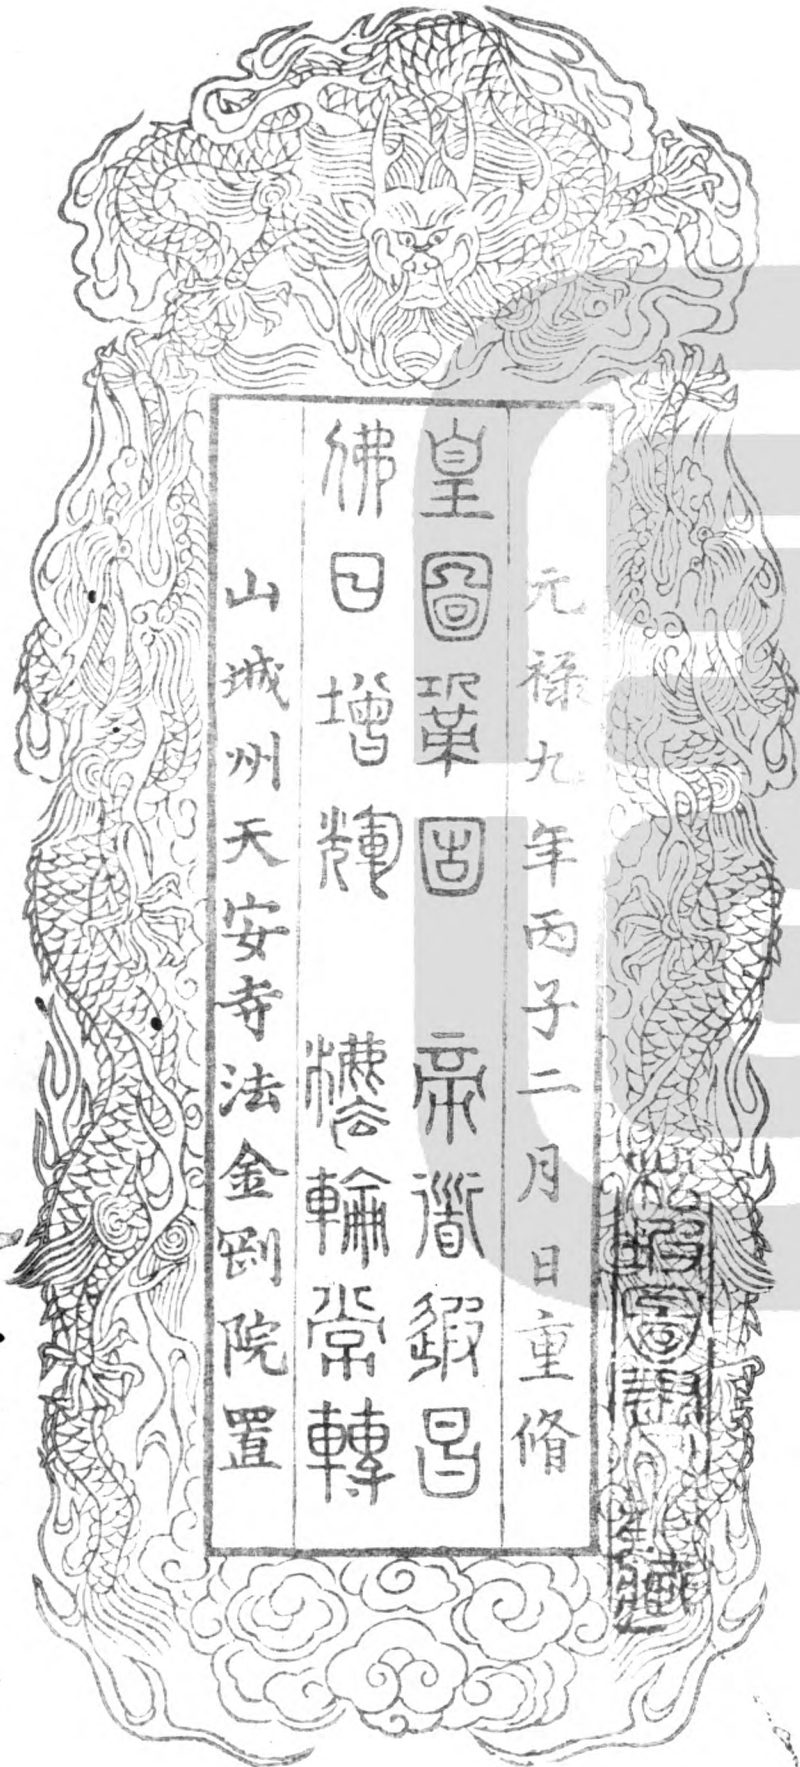 元祿九年丙子二月 日重脩
皇圖鞏固 帝道遐昌
佛日增輝 法輪常轉
山城州天安寺法金剛院置